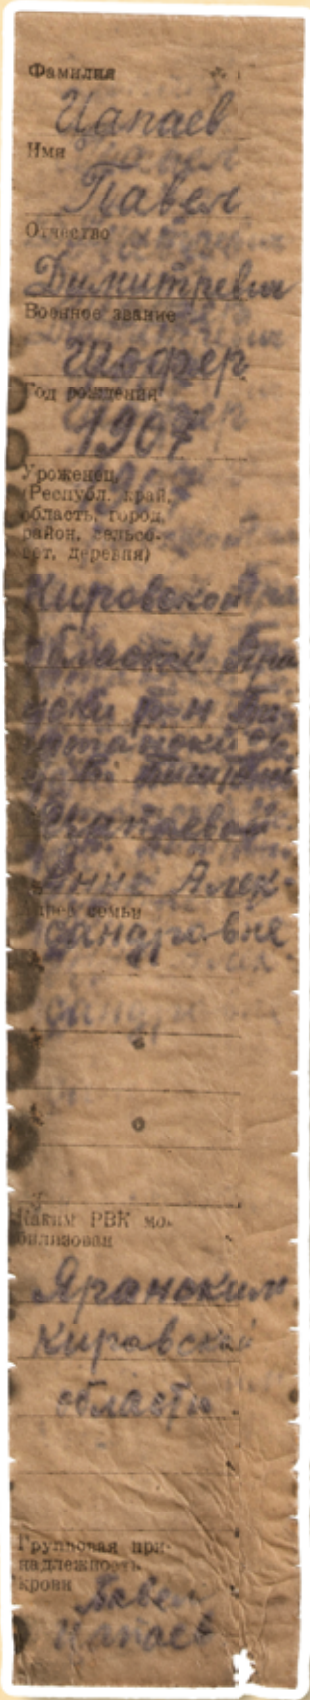 Фамилия
Цапаев
Имя
Павел
Отчество
Димитревич
Военное звание
Шофер
Год рождения
1907
Уроженец
(Республ. край,
область, город,
район, сельсо-
вет, деревня)
Кировской
области
Анне Алек-
Адрес семьи
сандровне
Каким РВК мо-
билизован
Яранским
Кировской
области
Групповая при-
надлежность
крови
Павел
Цапаев